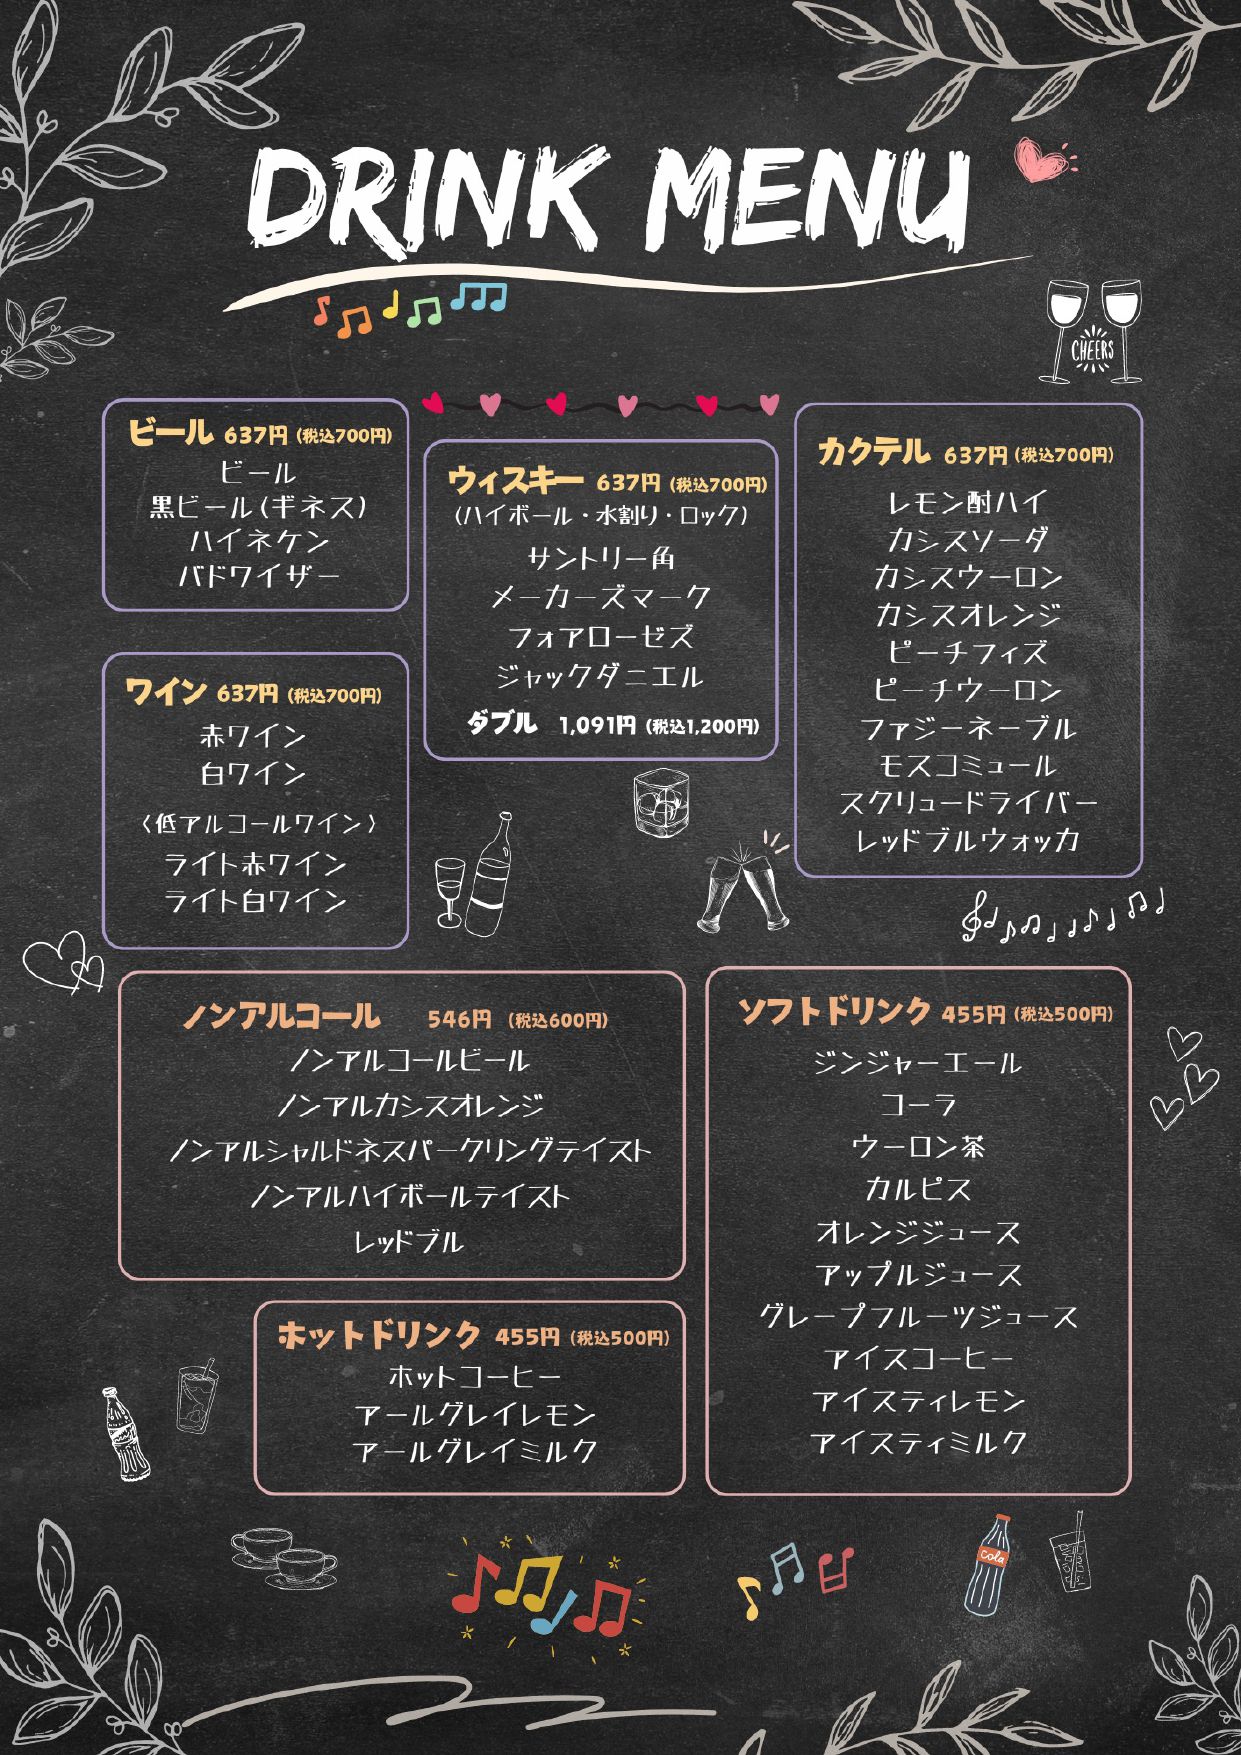 DRINK MENU
CHEERS
ビール 637円 (税込700円)
ビール
黒ビール(ギネス)
ハイネケン
バドワイザー
ウィスキー 637円 (税込700円)
(ハイボール・水割り・ロック)
サントリー角
メーカーズマーク
フォアローゼズ
ジャックダニエル
ダブル 1,091円 (税込1,200円)
カクテル 637円 (税込700円)
レモン酎ハイ
カシスソーダ
カシスウーロン
カシスオレンジ
ピーチフィズ
ピーチウーロン
ファジーネーブル
モスコミュール
スクリュードライバー
レッドブルウォッカ
ワイン 637円 (税込700円)
赤ワイン
白ワイン
〈低アルコールワイン〉
ライト赤ワイン
ライト白ワイン
ノンアルコール 546円 (税込600円)
ノンアルコールビール
ノンアルカシスオレンジ
ノンアルシャルドネスパークリングテイスト
ノンアルハイボールテイスト
レッドブル
ソフトドリンク 455円 (税込500円)
ジンジャーエール
コーラ
ウーロン茶
カルピス
オレンジジュース
アップルジュース
グレープフルーツジュース
アイスコーヒー
アイスティレモン
アイスティミルク
ホットドリンク 455円 (税込500円)
ホットコーヒー
アールグレイレモン
アールグレイミルク
cola